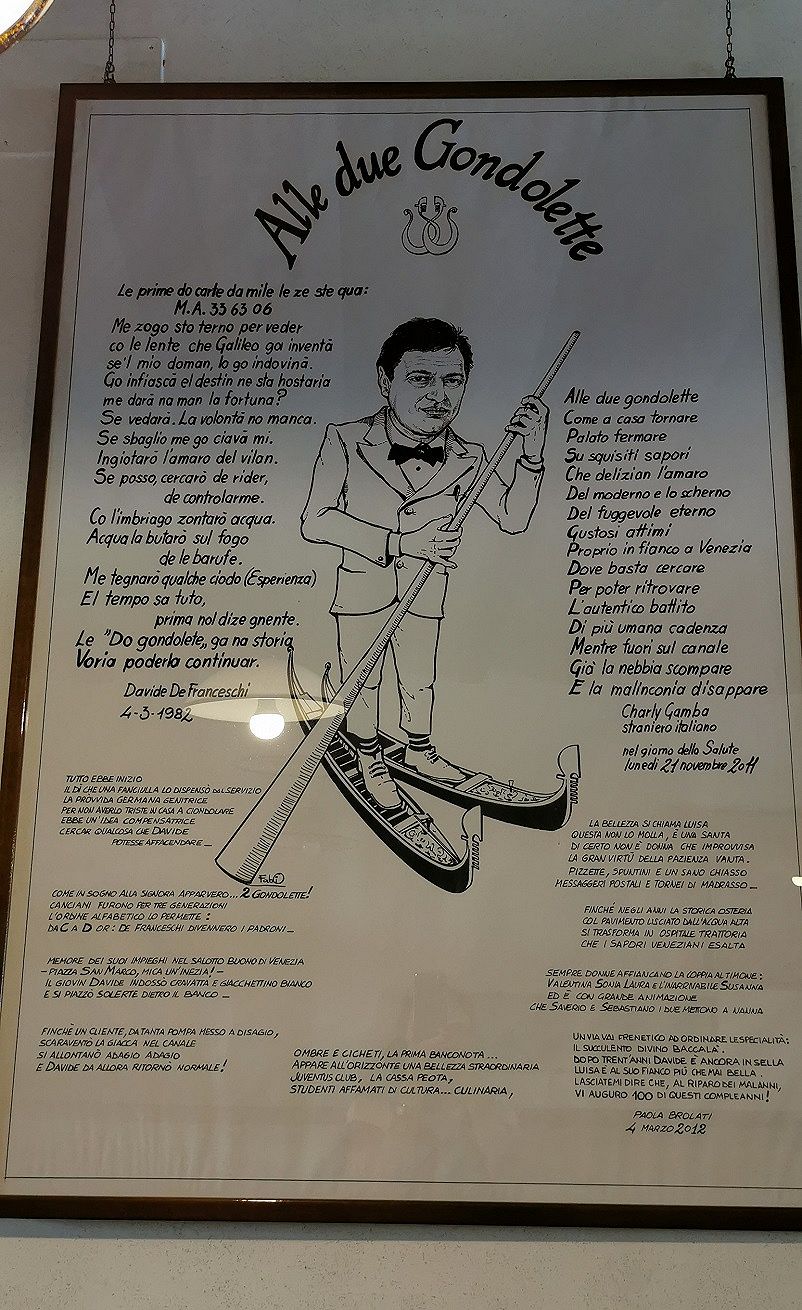 Alle due Gondolette
Le prime do carte da mile le ze ste qua:
M.A. 33 63 06
Me zogo sto terno per veder
co le lente che Galileo ga inventà
se'l mio doman, lo go indovinà.
Go infiascà el destin ne sta hostaria
me darà na man la fortuna?
Se vedarà. La volontà no manca.
Se sbaglio me go ciavà mi.
Ingiotarò l'amaro del vilan.
Se posso, cercarò de rider,
de controlarme.
Co l'imbriago zontarò acqua.
Acqua la butarò sul fogo
de le barufe.
Me tegnarò qualche ciodo (Esperienza)
El tempo sa tuto,
prima nol dize gnente.
Le "Do gondolete,, ga na storia
Voria poderla continuar.
Davide De Franceschi
4-3-1982
Alle due gondolette
Come a casa tornare
Palato fermare
Su squisiti sapori
Che delizian l'amaro
Del moderno e lo scherno
Del fuggevole eterno
Gustosi attimi
Proprio in fianco a Venezia
Dove basta cercare
Per poter ritrovare
L'autentico battito
Di più umana cadenza
Mentre fuori sul canale
Già la nebbia scompare
E la malinconia disappare
Charly Gamba
straniero italiano
nel giorno della Salute
lunedì 21 novembre 2011
TUTTO EBBE INIZIO
IL DÌ CHE UNA FANCIULLA LO DISPENSÒ DAL SERVIZIO
LA PROVVIDA GERMANA GENITRICE
PER NON AVERLO TRISTE IN CASA A CIONDOLARE
EBBE UN'IDEA COMPENSATRICE
CERCAR QUALCOSA CHE DAVIDE
POTESSE AFFACENDARE_
COME IN SOGNO ALLA SIGNORA APPARVERO... 2 GONDOLETTE!
CANCIANI FURONO PER TRE GENERAZIONI
L'ORDINE ALFABETICO LO PERMETTE:
DA C A D OR: DE FRANCESCHI DIVENNERO I PADRONI_
MEMORE DEI SUOI IMPIEGHI NEL SALOTTO BUONO DI VENEZIA
-PIAZZA SAN MARCO, MICA UN'INEZIA!-
IL GIOVIN DAVIDE INDOSSÒ CRAVATTA E GIACCHETTINO BIANCO
E SI PIAZZÒ SOLERTE DIETRO IL BANCO_
FINCHÈ UN CLIENTE, DA TANTA POMPA MESSO A DISAGIO,
SCARAVENTÒ LA GIACCA NEL CANALE
SI ALLONTANÒ ADAGIO ADAGIO
E DAVIDE DA ALLORA RITORNÒ NORMALE!
Fabi
OMBRE E CICHETI, LA PRIMA BANCONOTA...
APPARE ALL'ORIZZONTE UNA BELLEZZA STRAORDINARIA
JUVENTUS CLUB, LA CASSA PEOTA,
STUDENTI AFFAMATI DI CULTURA... CULINARIA,
LA BELLEZZA SI CHIAMA LUISA
QUESTA NON LO MOLLA, È UNA SANTA
DI CERTO NON È DONNA CHE IMPROVVISA
LA GRAN VIRTÙ DELLA PAZIENZA VANTA.
PIZZETTE, SPUNTINI E UN SANO CHIASSO
MESSAGGERI POSTALI E TORNEI DI MADRASSO_
FINCHÈ NEGLI ANNI LA STORICA OSTERIA
COL PAVIMENTO LISCIATO DALL'ACQUA ALTA
SI TRASFORMA IN OSPITALE TRATTORIA
CHE I SAPORI VENEZIANI ESALTA
SEMPRE DONNE AFFIANCANO LA COPPIA AL TIMONE:
VALENTINA SONIA LAURA E L'INARRIVABILE SUSANNA
ED È CON GRANDE ANIMAZIONE
CHE SAVERIO E SEBASTIANO I DUE METTONO A NANNA
UN VIA VAI FRENETICO AD ORDINARE LE SPECIALITÀ:
IL SUCCULENTO DIVINO BACCALÀ.
DOPO TRENT'ANNI DAVIDE È ANCORA IN SELLA
LUISA È AL SUO FIANCO PIÙ CHE MAI BELLA.
LASCIATEMI DIRE CHE, AL RIPARO DEI MALANNI,
VI AUGURO 100 DI QUESTI COMPLEANNI!
PAOLA BROLATI
4 MARZO 2012